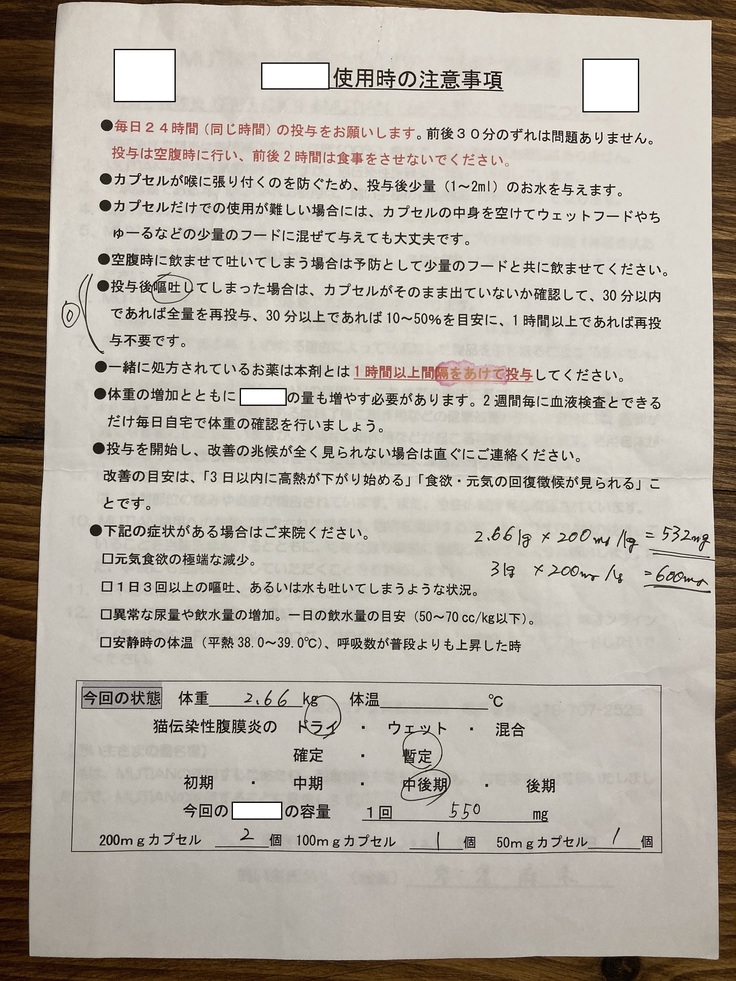 使用時の注意事項
●毎日２４時間（同じ時間）の投与をお願いします。前後３０分のずれは問題ありません。
投与は空腹時に行い、前後２時間は食事をさせないでください。
●カプセルが喉に張り付くのを防ぐため、投与後少量（1～2ml）のお水を与えます。
●カプセルだけでの使用が難しい場合には、カプセルの中身を空けてウェットフードやち
ゅーるなどの少量のフードに混ぜて与えても大丈夫です。
●空腹時に飲ませて吐いてしまう場合は予防として少量のフードと共に飲ませてください。
●投与後嘔吐してしまった場合は、カプセルがそのまま出ていないか確認して、30 分以内
であれば全量を再投与、30 分以上であれば 10～50％を目安に、１時間以上であれば再投
与不要です。
●一緒に処方されているお薬は本剤とは１時間以上間隔をあけて投与してください。
●体重の増加とともに の量も増やす必要があります。２週間毎に血液検査とできる
だけ毎日自宅で体重の確認を行いましょう。
●投与を開始し、改善の兆候が全く見られない場合は直ぐにご連絡ください。
改善の目安は、「3 日以内に高熱が下がり始める」「食欲・元気の回復徴候が見られる」こ
とです。
●下記の症状がある場合はご来院ください。
2.66kg × 200mg/kg = 532mg
□元気食欲の極端な減少。
3kg × 200mg/kg = 600mg
□１日３回以上の嘔吐、あるいは水も吐いてしまうような状況。
□異常な尿量や飲水量の増加。一日の飲水量の目安（50～70 cc/kg以下）。
□安静時の体温（平熱 38.0～39.0℃）、呼吸数が普段よりも上昇した時
今回の状態 体重 2.66 kg 体温 ℃
猫伝染性腹膜炎の ドライ ・ ウェット ・ 混合
確定 ・ 暫定
初期 ・ 中期 ・ 中後期 ・ 後期
今回の の容量 １回 550 mg
200ｍｇカプセル 2 個 100ｍｇカプセル 1 個 50ｍｇカプセル 1 個